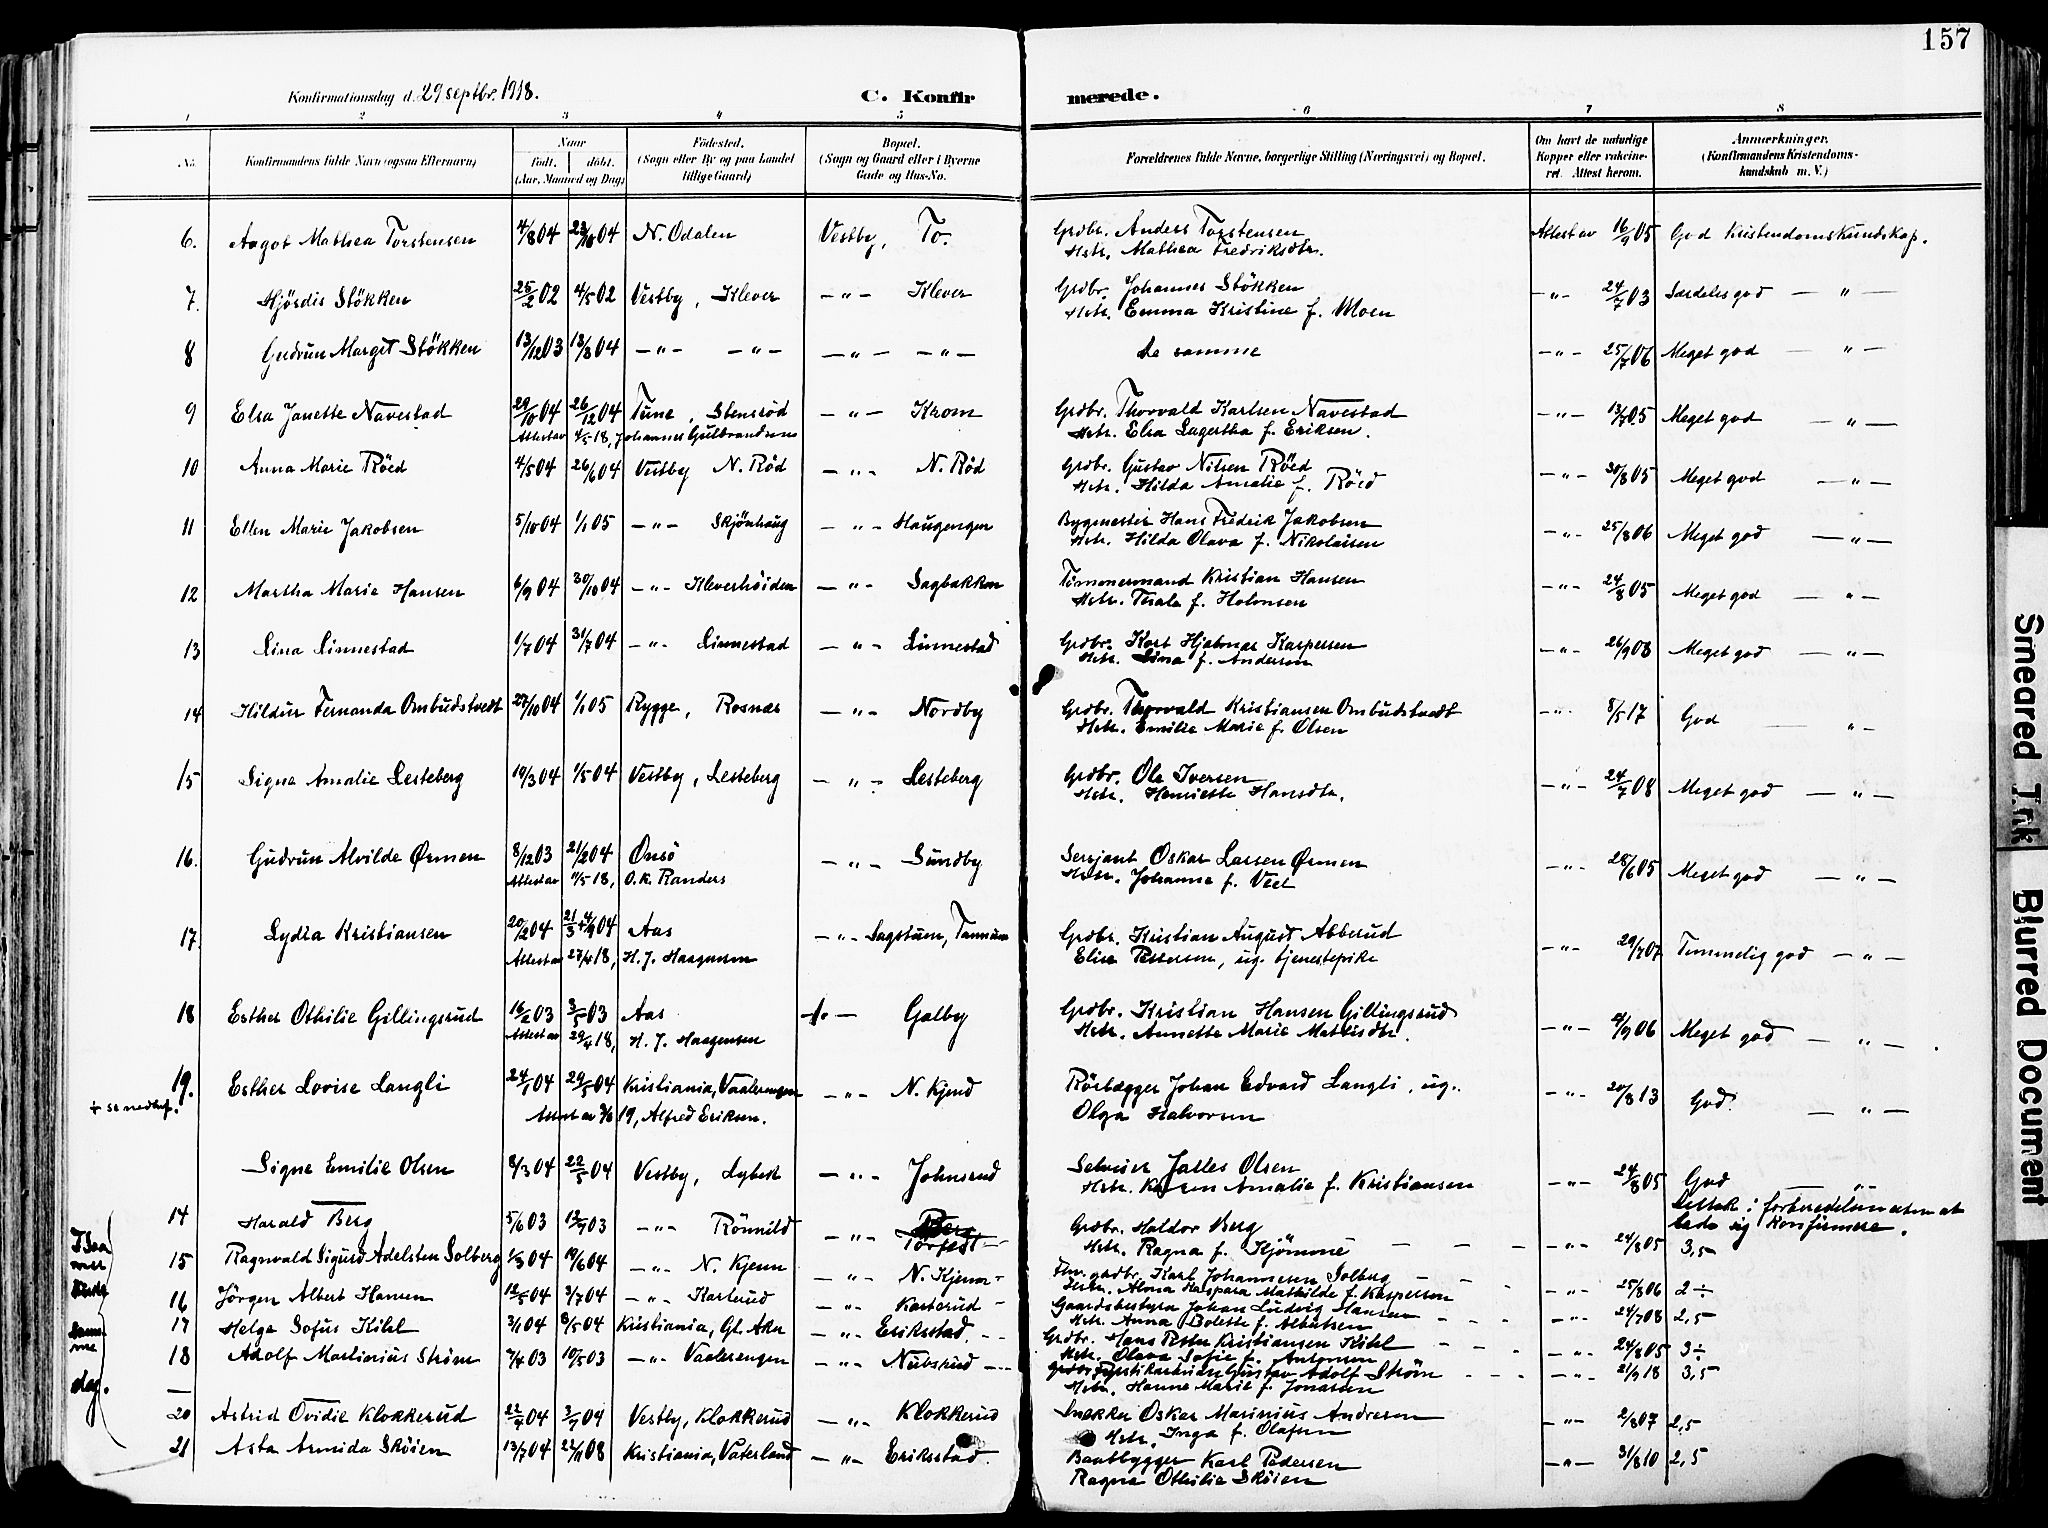 157
Konfirmationsdag d. 29 septbr. 1918.
C. Konfir
merede.
1 2 3 4 5 6 7 8
No. Konfirmandens fulde Navn (ogsaa Efternavn) Naar født. døbt. (Aar, Maaned og Dag) Fødested. (Sogn eller By og paa Landet tillige Gaard) Bopæl. (Sogn og Gaard eller i Byerne Gade og Hus-No. Forældrenes fulde Navne, borgerlige Stilling (Næringsvei) og Bopæl. Om havt de naturlige Kopper eller vakcineret. Attest herom. Anmærkninger. (Konfirmandens Kristendomskundskab m. V.)
6. Aagot Mathea Torstensen 4/8 04 23/10 04 N. Odalen Vestby, To. Grdbr. Anders Torstensen Attest av 16/9 05 God Kristendomskundskap.
Hstr. Mathea Fredriksdtr.
7. Hjördis Stökken 25/2 02 4/5 02 Vestby, Klever — " — Klever Grdbr. Johannes Stökken — " — 24/7 03 Særdeles god — " —
Hstr. Emma Kristine f. Moen
8 Gudrun Margit Stökken 13/12 03 13/3 04 — " — — " — — " — — " — de samme — " — 25/7 06 Meget god — " —
9 Elsa Janette Navestad 29/10 04 26/12 04 Tune, Stensröd — " — Krom Grdbr. Thorvald Karlsen Navestad — " — 13/7 05 Meget god — " —
Attest av 4/5 18, Johannes Gulbrandsen Hstr. Elsa Lagertha f. Eriksen.
10 Anna Marie Röed 4/5 04 26/6 04 Vestby N. Röd — " — N. Röd Grdbr. Gustav Nilsen Röed — " — 30/8 05 Meget god — " —
Hstr. Hilda Amalie f. Röed
11 Ellen Marie Jakobsen 5/10 04 1/1 05 — " — Skjönhaug — " — Haugengen Bygmester Hans Fredrik Jakobsen — " — 25/8 06 Meget god — " —
Hstr. Hilda Olava f. Nikolaisen
12 Martha Marie Hansen 6/9 04 30/10 04 — " — Kleverhöiden — " — Sagbakken Tömmermand Kristian Hansen — " — 24/8 05 Meget god — " —
Hstr. Thala f. Holmsen
13 Lina Linnestad 1/7 04 31/7 04 — " — Linnestad — " — Linnestad Grdbr. Kort Hjalmar Kaspersen — " — 26/9 08 Meget god — " —
Hstr. Lina f. Andersen
14 Hildur Fernanda Ombudstvedt 27/10 04 1/1 05 Rygge, Rosnæs — " — Nordby Grdbr. Thorvald Kristiansen Ombudstvedt — " — 8/5 17 God — " —
Hstr. Emilie Marie f. Olsen
15 Signe Amalie Lesteberg 19/3 04 1/5 04 Vestby, Lesteberg — " — Lesteberg Grdbr. Ole Iversen — " — 24/7 08 Meget god — " —
Hstr. Henriette Hansdtr.
16. Gudrun Alvilde Ørmen 8/12 03 21/2 04 Onsö — " — Sundby Sersjant Oskar Larsen Ørmen — " — 28/6 05 Meget god — " —
Attest av 11/5 18, O. K. Randers Hstr. Johanne f. Veel
17. Lydia Kristiansen 20/2 04 21/3 + 4/9 04 Aas — " — Sagstuen, Tannum Grdbr. Kristian August Abberud — " — 29/7 07 Temmelig god — " —
Attest av 27/4 18, H. J. Haagensen Elise Pettersen, ug. tjenestepike
18 Esther Othilie Gillingsrud 16/2 03 3/5 03 Aas — " — Galby Grdbr. Kristian Hansen Gillingsrud — " — 4/9 06 Meget god — " —
Attest av 29/4 18, H. J. Haagensen Hstr. Annette Marie Mathisdtr.
19. Esther Lovise Langli 24/1 04 29/5 04 Kristiania, Vaalerengen — " — N. Kjend Rörlægger Johan Edvard Langli, ug. — " — 20/8 13 God. — " —
+ se nedenf. Attest av 3/6 19, Alfred Eriksen. Olga Halvorsen
Signe Emilie Olsen 8/3 04 22/5 04 Vestby, Lybæk — " — Johnsrud Jalles Olsen — " — 24/8 05 God
Hstr. Karen Amalie f. Kristiansen
Deltok i forberedelsen uten at lade sig konfirmere.
14 Harald Berg 5/6 03 12/7 03 — " — Rönnild — " — Torfest Grdbr. Haldor Berg — " — 24/8 05 3,5
Hstr. Ragna f. Kjömme
15 Ragnvald Sigurd Adelsten Solberg 1/3 04 19/6 04 — " — N. Kjenn — " — N. Kjenn Fhv. grdbr. Karl Johannesen Solberg — " — 25/8 06 2 ÷
Hstr. Alma Kaspara Mathilde f. Kaspersen
16 Jörgen Albert Hansen 12/5 04 3/7 04 — " — Karterud — " — Karterud Gaardsbestyrer Johan Ludvig Hansen — " — 24/7 08 2,5
Hstr. Anna Bolette f. Albertsen
17 Helge Sofus Kihl 3/1 04 8/5 04 Kristiania, Gl. Aker — " — Eriksstad Grdbr. Hans Petter Kristiansen Kihl — " — 24/8 05 3 ÷
Hstr. Olava Sofie f. Antonsen
18 Adolf Martinius Ström 7/4 03 10/5 03 — " — Vaalerengen — " — Nubsrud Gustav Adolf Ström — " — 21/9 18 3,5
Hstr. Hanne Marie f. Jonassen
samme dag.
20 Astrid Ovidie Klokkerud 22/4 04 3/7 04 Vestby, Klokkerud — " — Klokkerud Snekker Oskar Marinius Andresen — " — 2/8 07 2,5
Hstr. Inga f. Olafsen
21 Asta Armida Sköien 13/7 04 22/11 08 Kristiania, Vaterland — " — Eriksstad. Baatbygger Karl Pedersen — " — 31/8 10 2,5
Ragna Othilie Sköien
Smeared Ink
Blurred Document